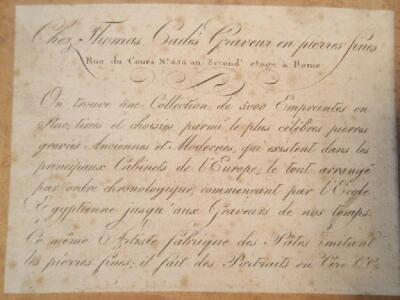 Chez Thomas Cadés Graveur en pierres fines
Rue du Cours N.º 456 au Second' etage à Rome
On trouve une Collection de 5000 Empreintes en
Stuc, tirés et choisies parmi le plus célébres pierres
gravés Anciennes et Modernes, qui existent dans les
principaux Cabinets de l'Europe; le tout arrangé
par ordre chronologique, commençant par l'Ecole
Egyptienne jusqu'aux Graveurs de nos temps.
Ce même Artiste fabrique des Pâtes imitant
les pierres fines; il fait des Portraits en Cire &c.